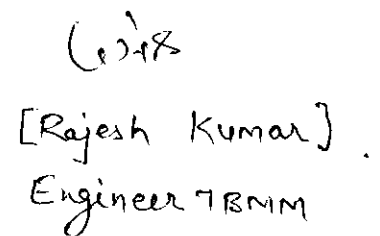 [Rajesh Kumar].
Engineer TBMM